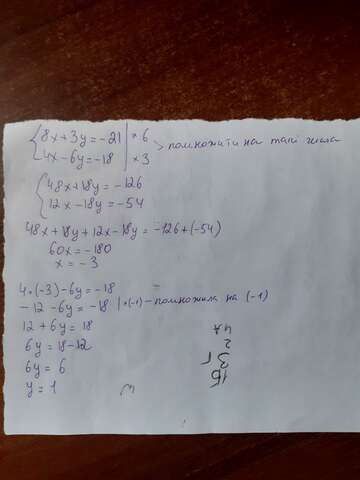 {8x+3y=-21 | *6
{4x-6y=-18 | *3 > помножити на такі числа
{48x+18y=-126
{12x-18y=-54
48x+18y+12x-18y=-126+(-54)
60x=-180
x=-3
4*(-3)-6y=-18
-12-6y=-18 | *(-1) - помножила на (-1)
12+6y=18
6y=18-12
6y=6
y=1
1Б
3Г
2
4А